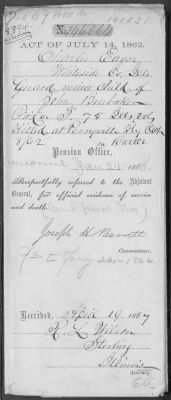 No 146664
ACT OF JULY 14, 1862.
Charles Eagor
Whiteside Co. Ills.
Guard. minor Child. of
John Brubaker
Priv. Co. I. 75 Ills. Vol.
Killed at Perryville Ky Oct
8/62
Pension Office,
Jan 24 186
Respectfully referred to the Adjutant
General, for official evidence of service
and death.
Joseph H Barrett
Commissioner.
Received, April 19, 1867
R. L. Wilson
Sterling
Illinois
Attorney.